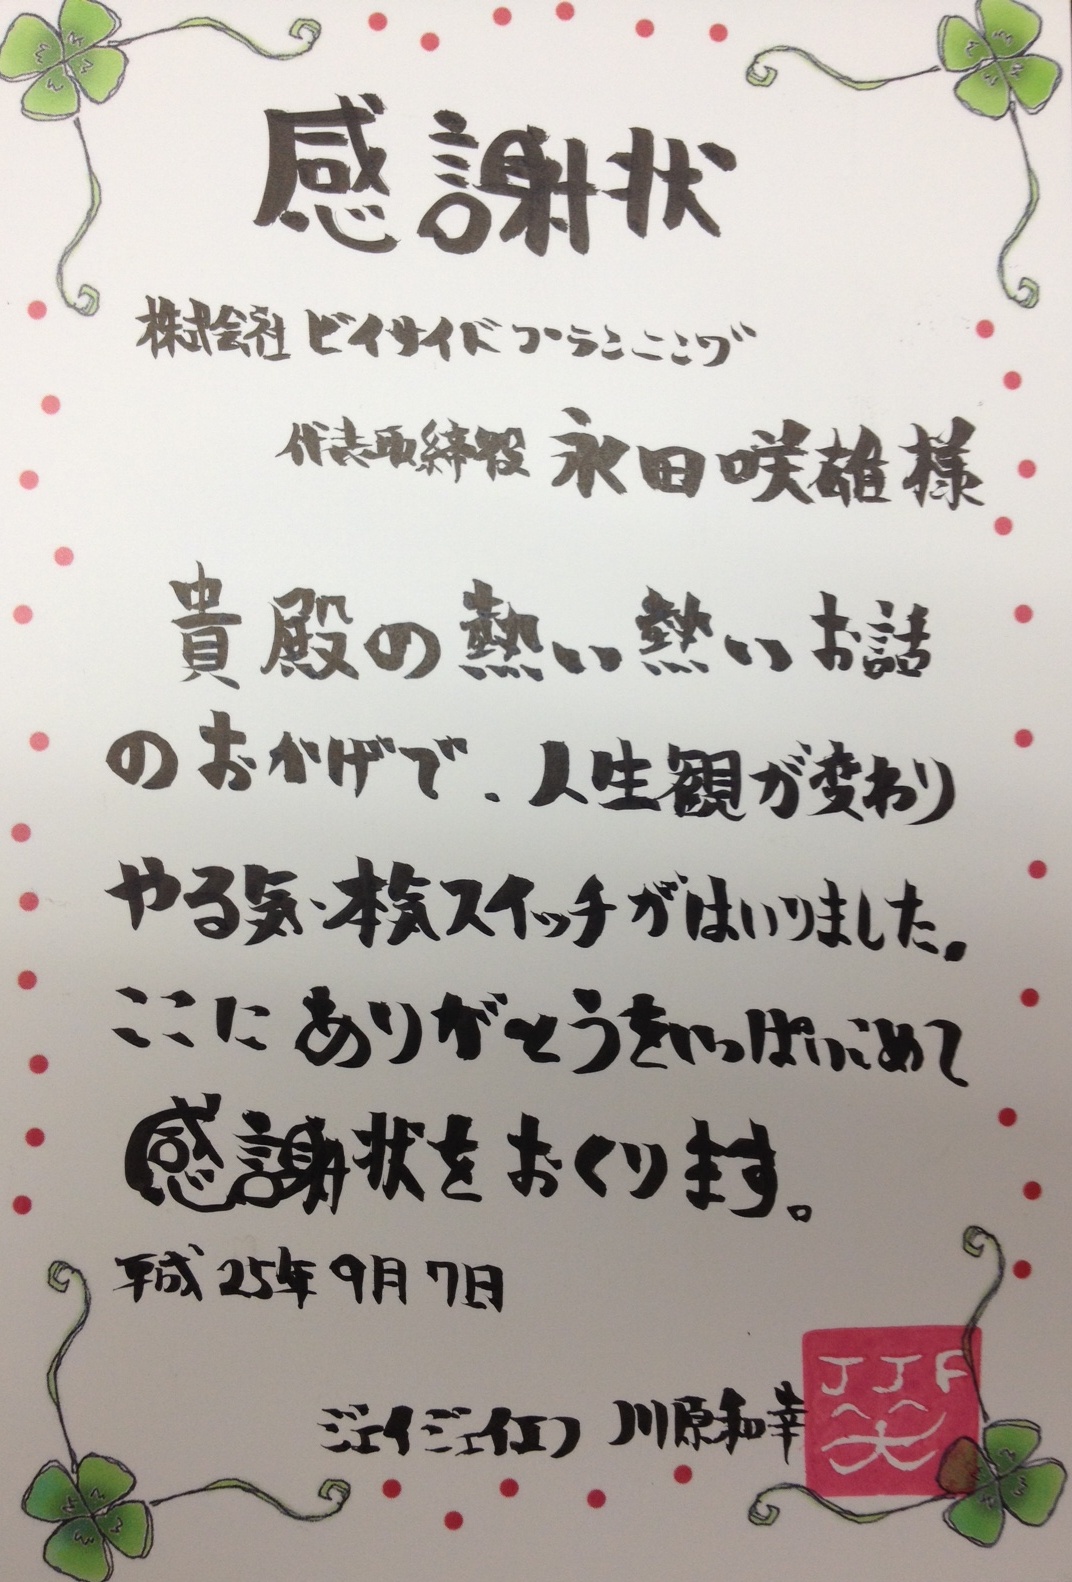 感謝状
株式会社 ビイサイド プランニング
代表取締役 永田咲雄様
貴殿の熱い熱いお話
のおかげで、人生観が変わり
やる気・本気スイッチがはいりました。
ここにありがとうをいっぱいこめて
感謝状をおくります。
平成25年9月7日
ジェイジェイエフ 川原和幸
JJF
笑